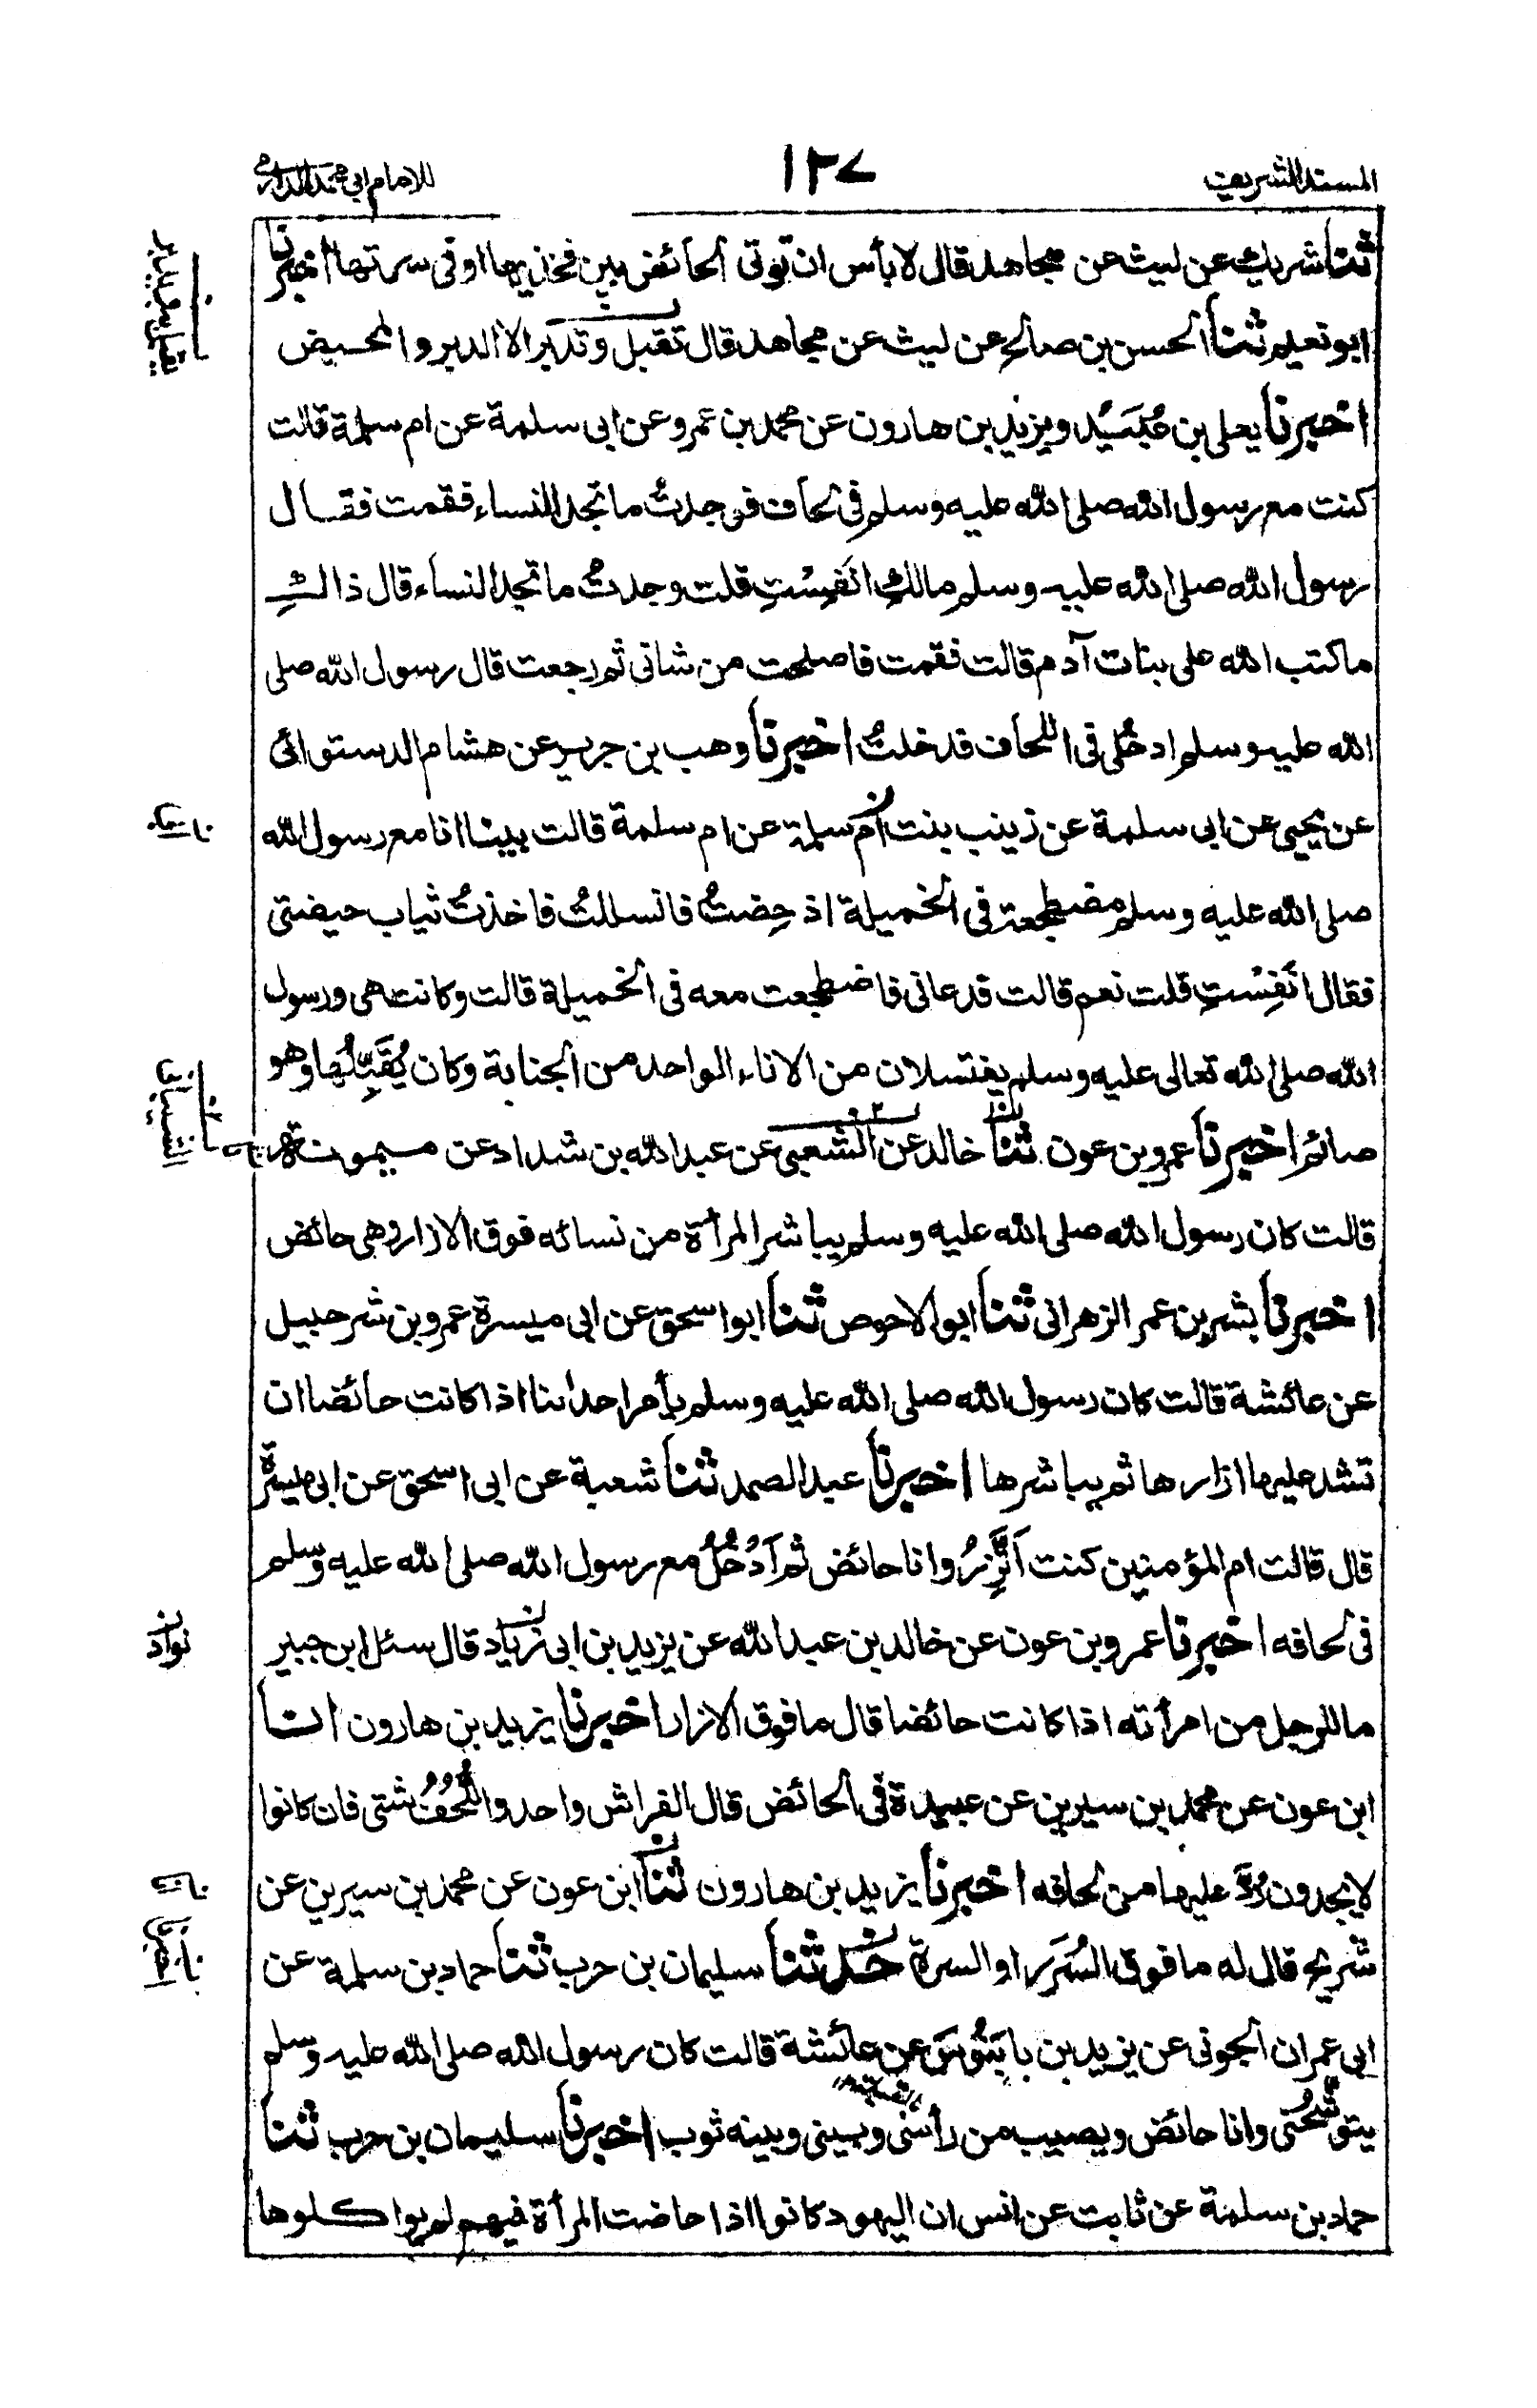 المسند الشريف
١٣٧
للامام ابي محمد الدارمي
ثنا شريك عن ليث عن مجاهد قال لا بأس ان توتى الحائض بين فخذيها او فى سرتها اخبرنا
ابو نعيم ثنا الحسن بن صالح عن ليث عن مجاهد قال تقبل وتدبر الا الدبر والمحيض
اخبرنا يعلى بن عُبَيْد ويزيد بن هارون عن محمد بن عمرو عن ابى سلمة عن ام سلمة قالت
كنت مع رسول الله صلى الله عليه وسلم فى لحاف فوجدتُ ما تجد النساء فقمت فقال
رسول الله صلى الله عليه وسلم مالكِ انَفِسْتِ قلت وجدتُ ما تجد النساء قال ذالكِ
ما كتب الله على بنات آدم قالت فقمت فاصلحت من شانى ثم رجعت قال رسول الله صلى
الله عليه وسلم ادخُلى فى اللحاف فدخلتُ اخبرنا وهب بن جرير عن هشام الدستوائى
عن يحيى عن ابى سلمة عن زينب بنت ام سلمة عن ام سلمة قالت بينا انا مع رسول الله
صلى الله عليه وسلم مضطجعة فى الخميلة اذ حِضتُ فانسللتُ فاخذتُ ثياب حيضتى
فقال انَفِسْتِ قلت نعم قالت فدعانى فاضطجعت معه فى الخميلة قالت وكانت هى ورسول
الله صلى الله تعالى عليه وسلم يغتسلان من الاناء الواحد من الجنابة وكان يُقَبِّلُها وهو
صائم اخبرنا عمرو بن عون ثنا خالد عن الشعبى عن عبد الله بن شداد عن ميمونة
قالت كان رسول الله صلى الله عليه وسلم يباشر المرأة من نسائه فوق الازار وهى حائض
اخبرنا بشر بن عمر الزهرانى ثنا ابو الاحوص ثنا ابو اسحق عن ابى ميسرة عمرو بن شرحبيل
عن عائشة قالت كان رسول الله صلى الله عليه وسلم يأمر احدانا اذا كانت حائضا ان
تشد عليها ازارها ثم يباشرها اخبرنا عبد الصمد ثنا شعبة عن ابى اسحق عن ابى ميسرة
قال قالت ام المؤمنين كنت اَتَّزِرُ وانا حائض ثم اَدْخُلُ مع رسول الله صلى الله عليه وسلم
فى لحافه اخبرنا عمرو بن عون عن خالد بن عبد الله عن يزيد بن ابى زياد قال سئل ابن جبير
ما للرجل من امرأته اذا كانت حائضا قال ما فوق الازار اخبرنا يزيد بن هارون انا
ابن عون عن محمد بن سيرين عن عبيدة فى الحائض قال الفراش واحد واللُّحُفُ شتى فان كانوا
لا يجدون رَدَّ عليها من لحافه اخبرنا يزيد بن هارون ثنا ابن عون عن محمد بن سيرين عن
شريح قال له ما فوق السُرَر او السرة حدثنا سليمان بن حرب ثنا حماد بن سلمة عن
ابى عمران الجونى عن يزيد بن بابَنُوسَ عن عائشة قالت كان رسول الله صلى الله عليه وسلم
يتوشحنى وانا حائض ويصيب من رأسى وبينى وبينه ثوب اخبرنا سليمان بن حرب ثنا
حماد بن سلمة عن ثابت عن انس ان اليهود كانوا اذا حاضت المرأة فيهم لم يواكلوها